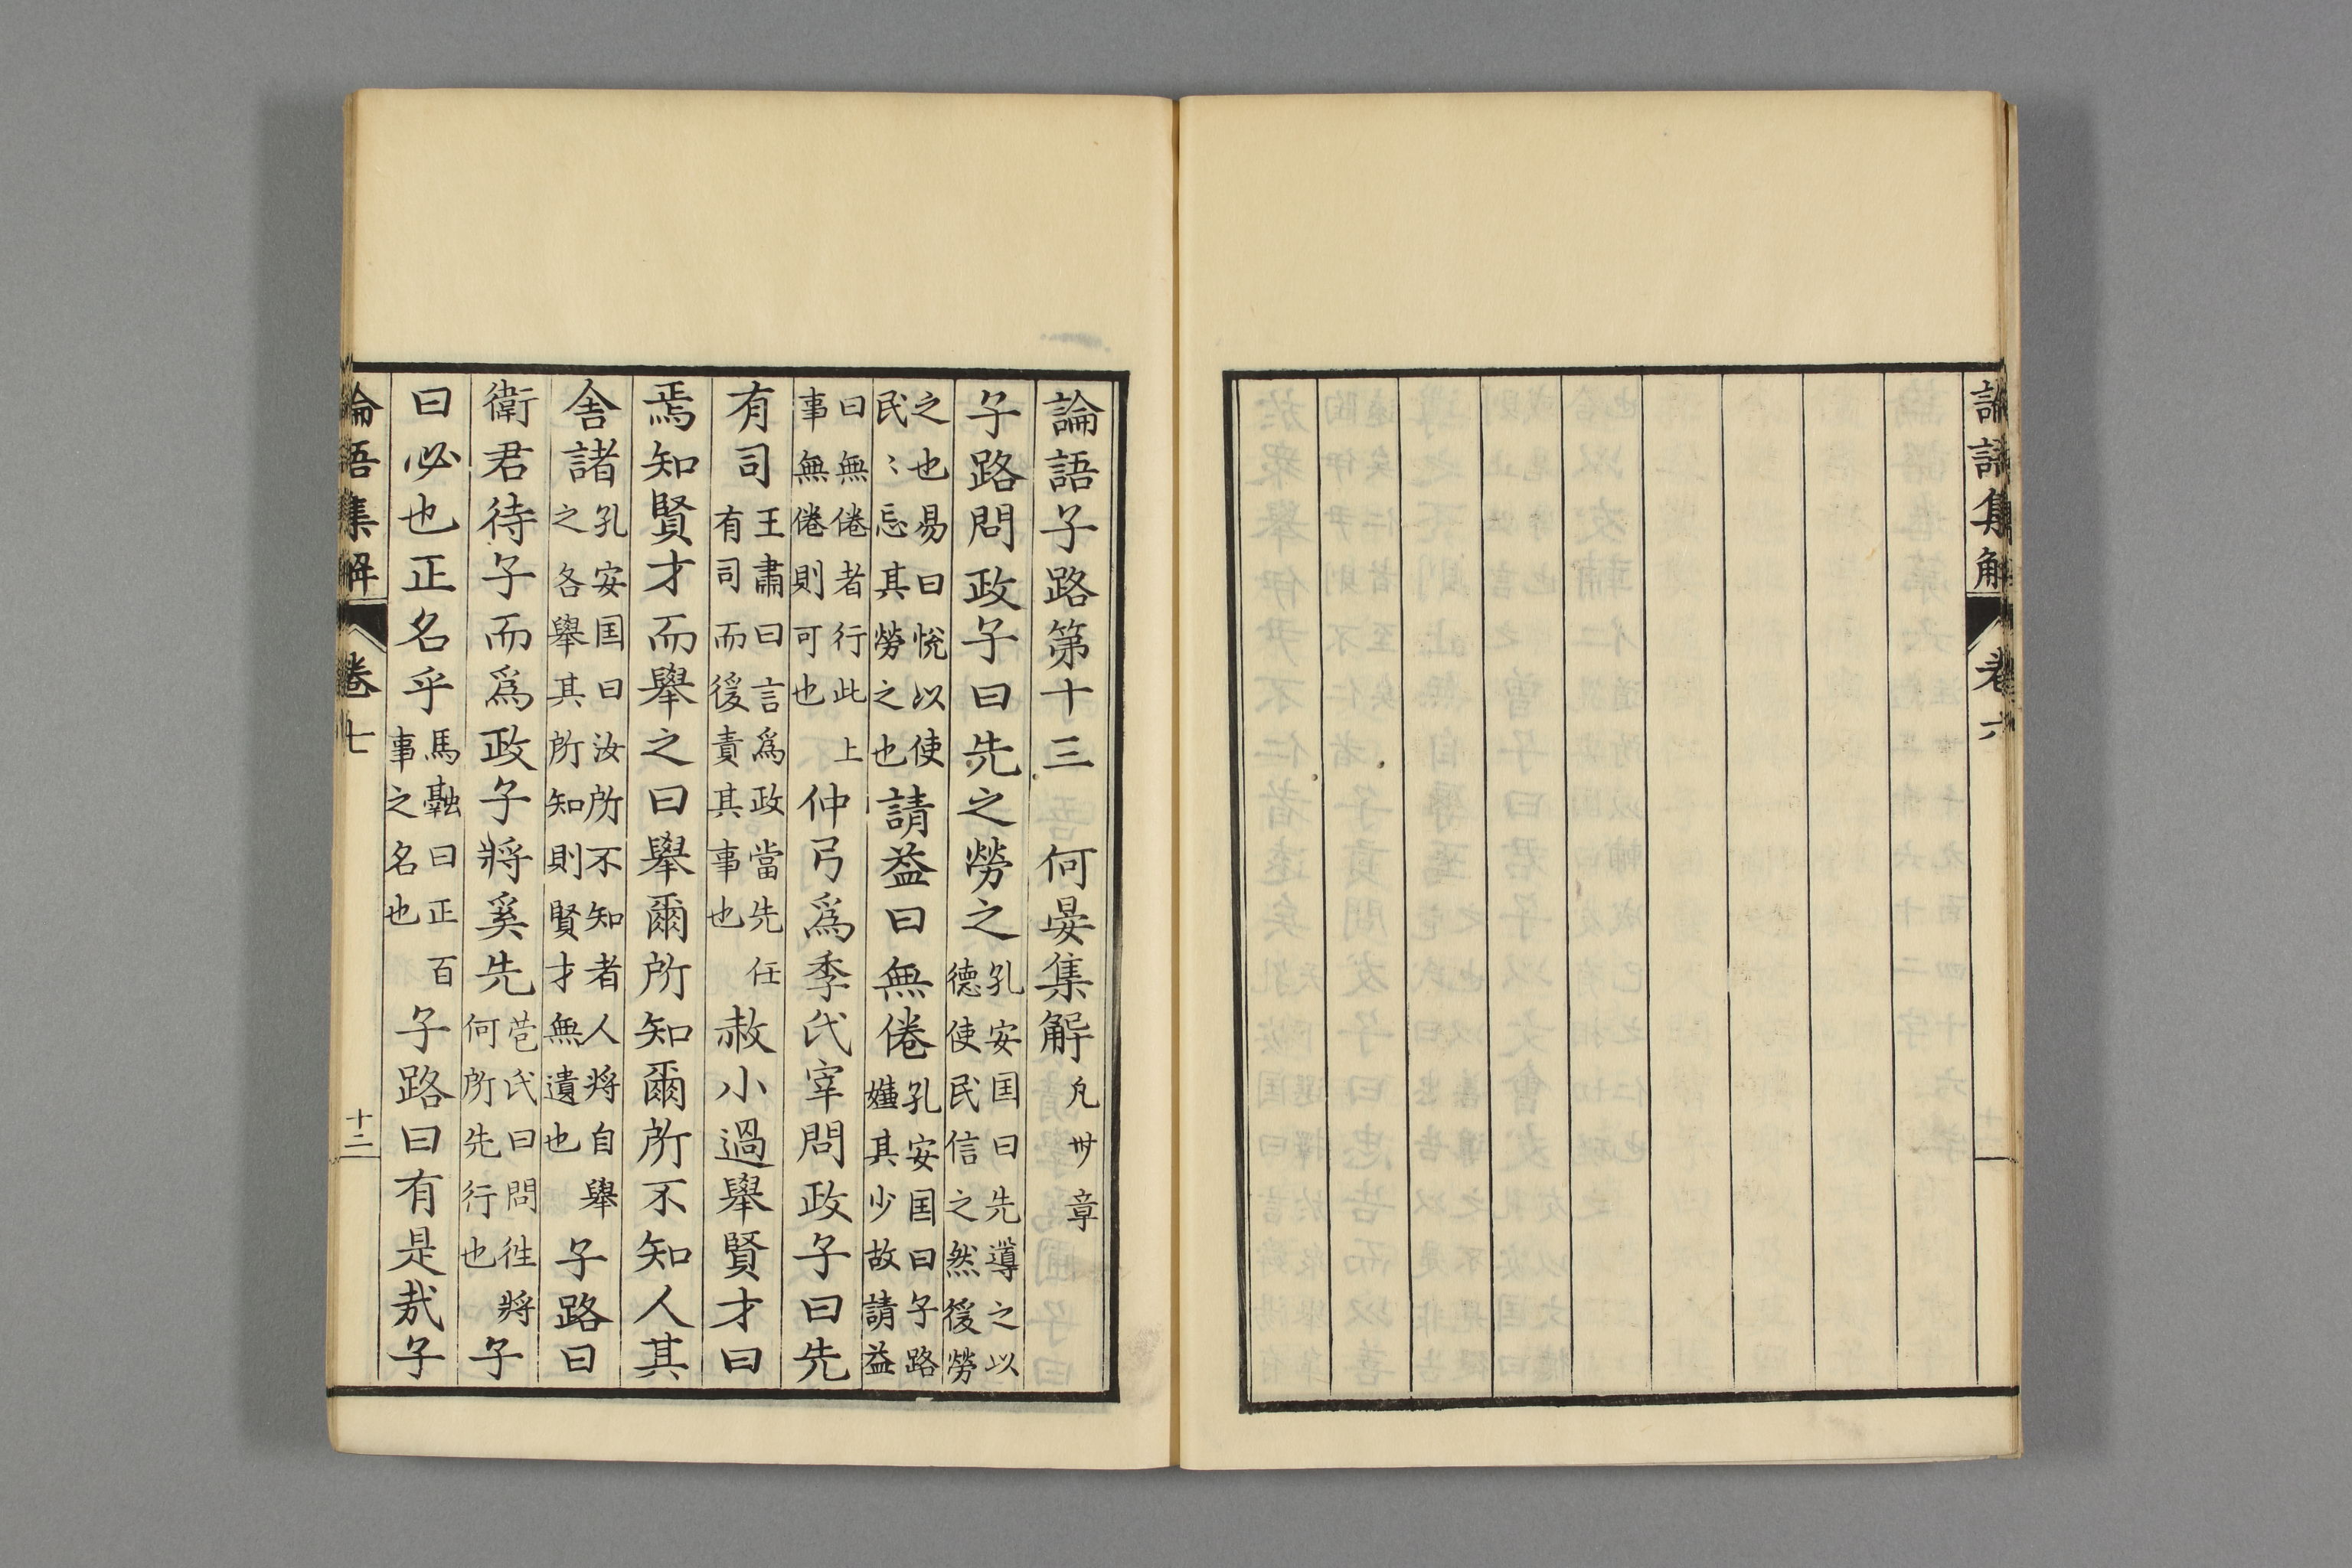 論語集解 卷六
論語子路第十三 何晏集解 凡卅章
子路問政子曰先之勞之孔安囯曰先導之以德使民信之然後勞
之也易曰悅以使民〻忘其勞之也請益曰無倦孔安囯曰子路嫌其少故請益
曰無倦者行此上事無倦則可也仲弓爲季氏宰問政子曰先
有司王肅曰言爲政當先任有司而後責其事也赦小過舉賢才曰
焉知賢才而舉之曰舉爾所知爾所不知人其
舍諸孔安囯曰汝所不知者人將自舉之各舉其所知則賢才無遺也子路曰
衛君待子而爲政子將奚先苞氏曰問往將何所先行也子
曰必也正名乎馬融曰正百事之名也子路曰有是哉子
論語集解 卷七 十二